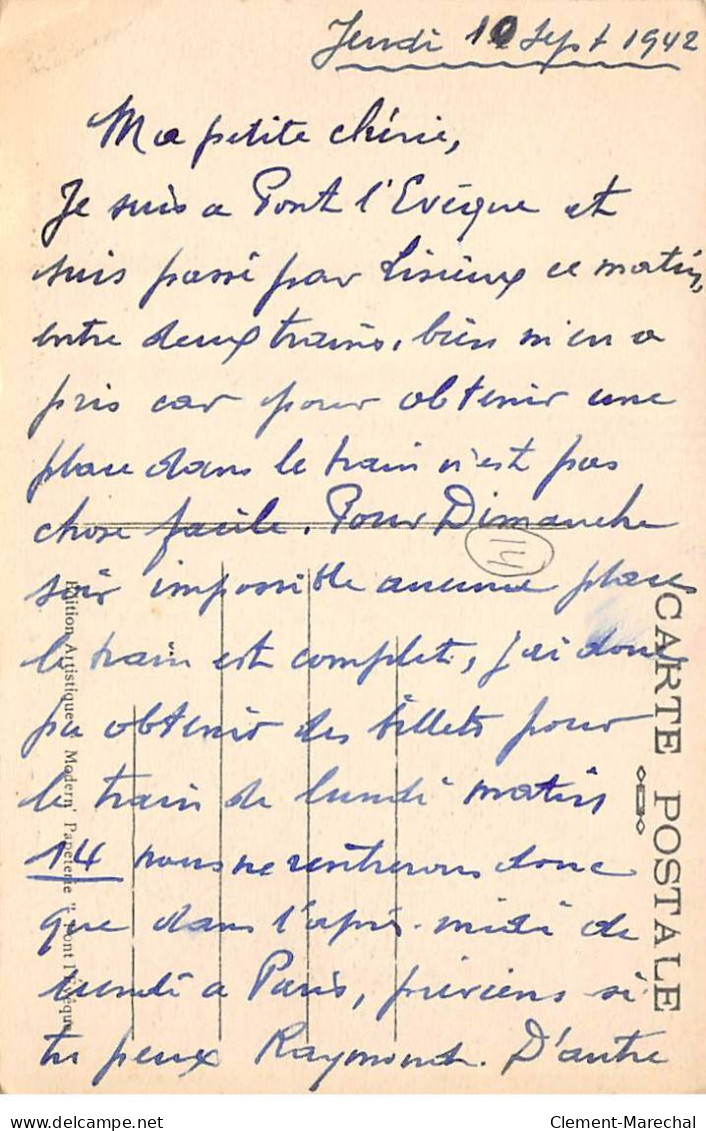 Jeudi 10 Sept 1942
Ma petite chérie,
Je suis a Pont l'Evêque et
suis passé par Lisieux ce matin,
entre deux trains, bien m'en a
pris car pour obtenir une
place dans le train n'est pas
chose facile. Pour Dimanche
14
soir impossible aucune place
le train est complet, j'ai donc
pu obtenir des billets pour
le train de lundi matin
14 nous ne rentrerons donc
que dans l'après-midi de
lundi a Paris, préviens si
tu peux Raymonde. D'autre
CARTE POSTALE
Edition Artistique Modern' Papeterie " Pont l'Evêque
delcampe.net
Clement-Marechal